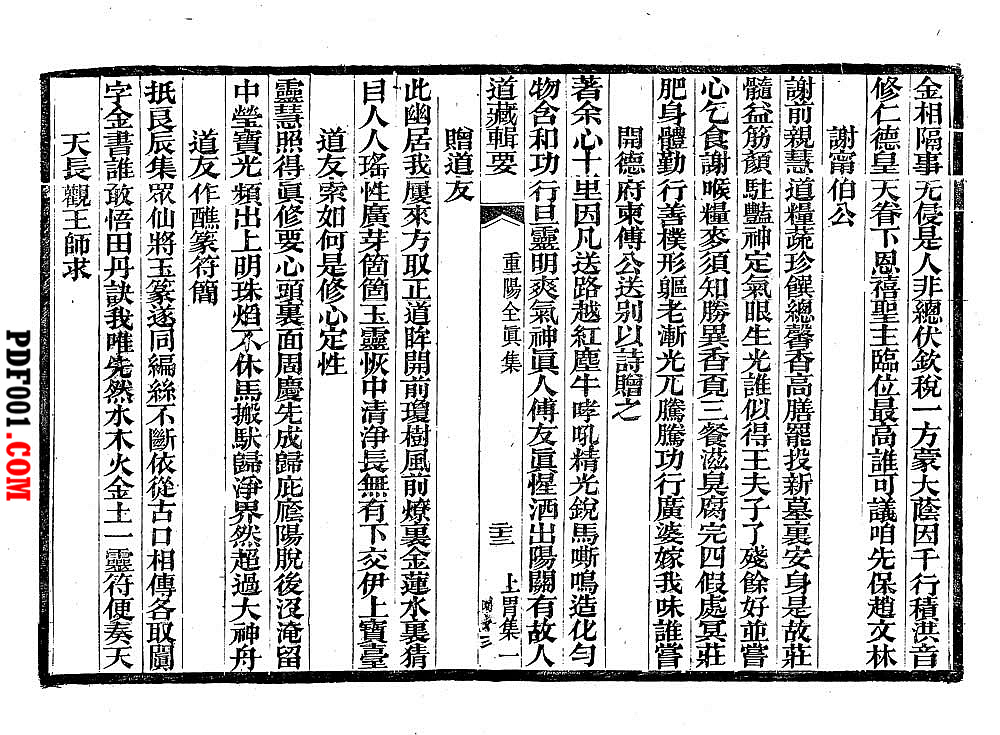 金相隔事无侵是人非總伏欽稅一方蒙大蔭因千行積洪音
修仁德皇天眷下恩禧聖主臨位最高誰可議咱先保趙文林
謝甯伯公
謝前親慧道糧蔬珍饌總馨香高膳罷投新墓裏安身是故莊
髓益筋顏駐豔神定氣眼生光誰似得王夫子了殘餘好並嘗
心乞食謝喉糧麥須知勝異香覔三餐滋臭腐完四假處冥莊
肥身體勤行善樸形軀老漸光兀騰騰功行廣婆嫁我味誰嘗
開德府東傅公送别以詩贈之
著余心十里因凡送路越紅塵牛哮吼精光銳馬嘶鳴造化勻
物含和功行旦靈明爽氣神眞人傅友眞惺洒出陽關有故人
道藏輯要
重陽全眞集
三十三
上胃集一
贈道友
此幽居我屢來方取正道眸開前瓊樹風前燎裏金蓮水裏猜
目人人瑤性廣芽箇箇玉靈恢中清淨長無有下交伊上寶臺
道友索如何是修心定性
靈慧照得眞修要心頭裏面周慶先成歸庇廕陽脫後沒淹留
中瑩寶光頻出上明珠焰不休馬搬馱歸淨界然超過大神舟
道友作醮篆符簡
抵艮辰集眾仙將玉篆遂同編絲不斷依從古口相傳各取闐
字金書誰敢悟田丹訣我唯先然水木火金土一靈符便奏天
天長觀王師求
PDF001.COM